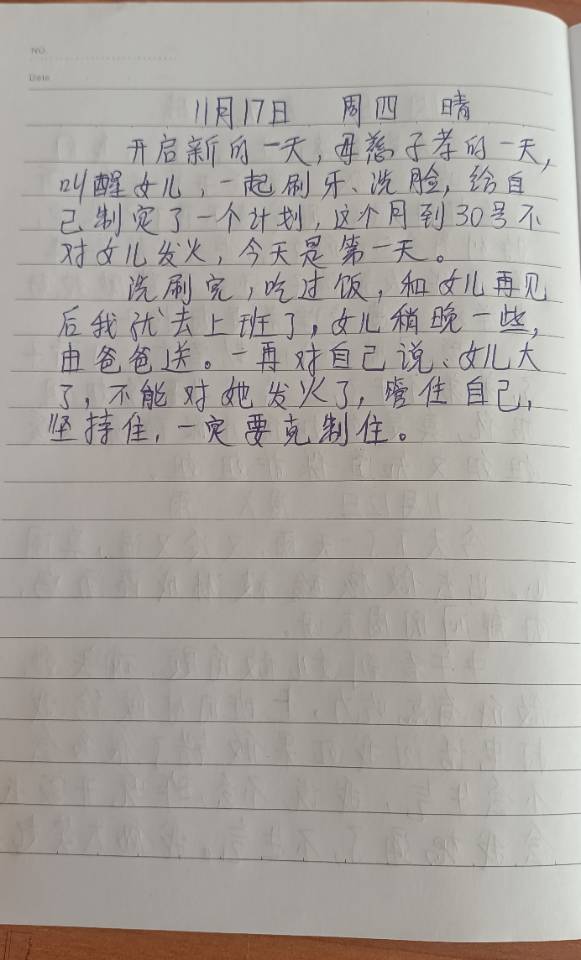 NO.
Date
11月17日 周四 晴
开启新的一天,母慈子孝的一天,
叫醒女儿,一起刷牙、洗脸,给自
己制定了一个计划,这个月到30号不
对女儿发火,今天是第一天。
洗刷完,吃过饭,和女儿再见
后我就去上班了,女儿稍晚一些,
由爸爸送。一再对自己说、女儿大
了,不能对她发火了,管住自己,
坚持住,一定要克制住。